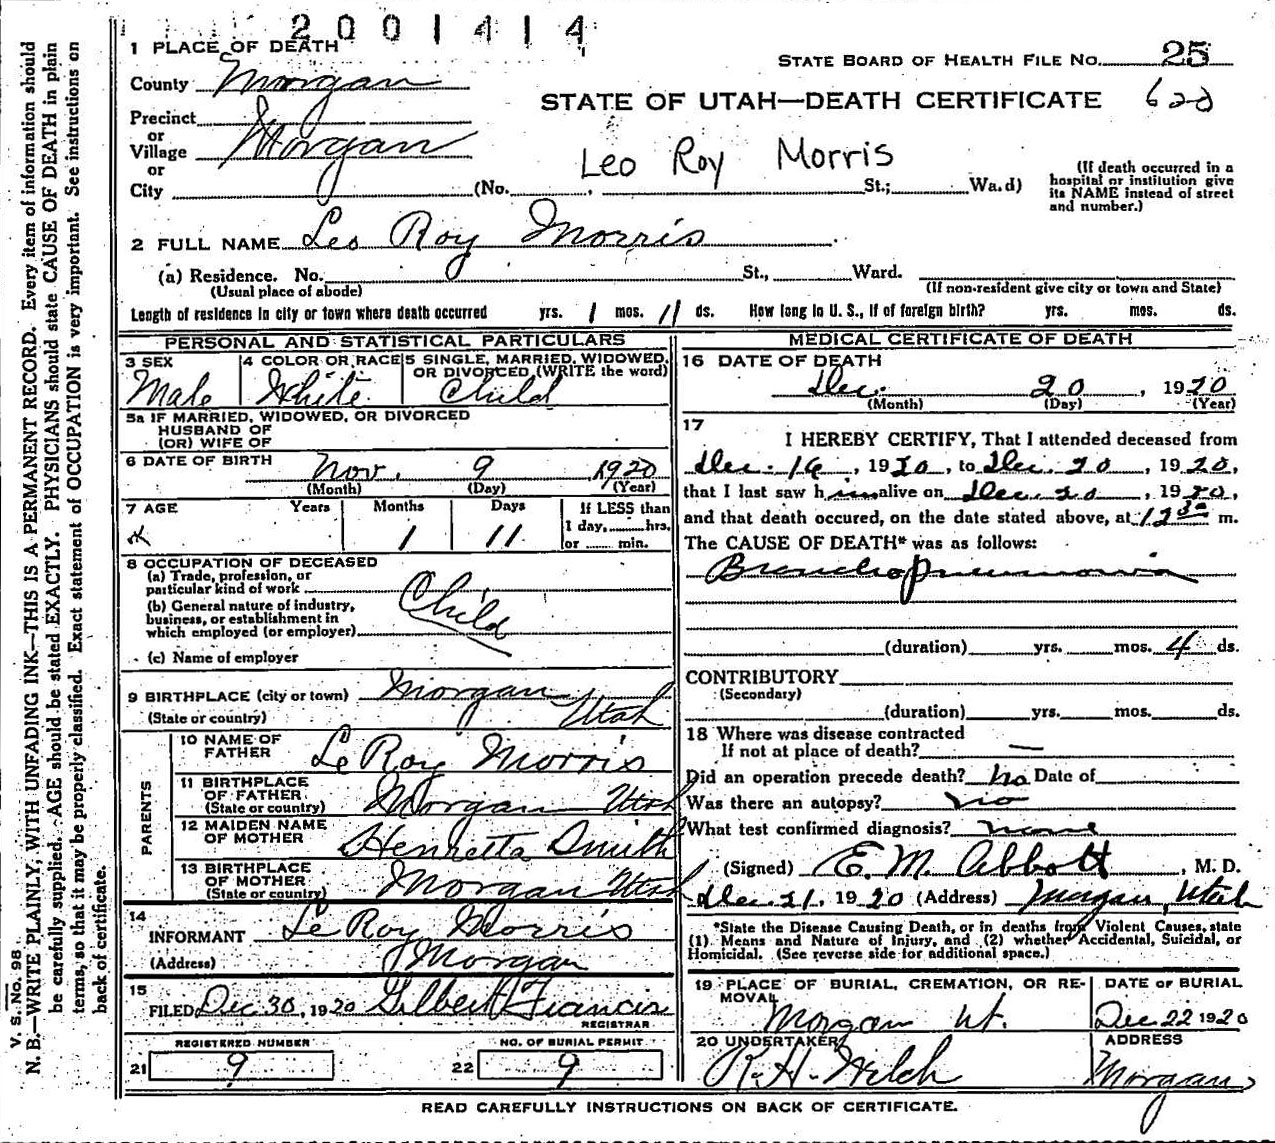 2001414
1 PLACE OF DEATH
STATE BOARD OF HEALTH FILE NO. 25
County Morgan
STATE OF UTAH—DEATH CERTIFICATE 620
Precinct
or
Village Morgan
or
Leo Roy Morris
City (No. , St.; Wa.d)
(If death occurred in a
hospital or institution give
its NAME instead of street
and number.)
2 FULL NAME Leo Roy Morris
(a) Residence. No. St., Ward.
(Usual place of abode)
(If non-resident give city or town and State)
Length of residence in city or town where death occurred yrs. 1 mos. 11 ds. How long in U. S., if of foreign birth? yrs. mos. ds.
PERSONAL AND STATISTICAL PARTICULARS
3 SEX
Male
4 COLOR OR RACE
White
5 SINGLE, MARRIED, WIDOWED,
OR DIVORCED (WRITE the word)
Child
5a IF MARRIED, WIDOWED, OR DIVORCED
HUSBAND OF
(OR) WIFE OF
6 DATE OF BIRTH Nov. 9 1920
(Month) (Day) (Year)
7 AGE Years Months Days
1 11
If LESS than
1 day, hrs.
or min.
8 OCCUPATION OF DECEASED
(a) Trade, profession, or
particular kind of work
(b) General nature of industry,
business, or establishment in
which employed (or employer)
Child
(c) Name of employer
9 BIRTHPLACE (city or town) Morgan
(State or country) Utah
PARENTS
10 NAME OF
FATHER LeRoy Morris
11 BIRTHPLACE
OF FATHER
(State or country) Morgan Utah
12 MAIDEN NAME
OF MOTHER Henretta Smith
13 BIRTHPLACE
OF MOTHER
(State or country) Morgan Utah
14
INFORMANT LeRoy Morris
(Address) Morgan
15
FILED Dec 30, 1920 Gilbert Francis
REGISTRAR
REGISTERED NUMBER
21 9
NO. OF BURIAL PERMIT
22 9
MEDICAL CERTIFICATE OF DEATH
16 DATE OF DEATH
Dec. 20, 1920
(Month) (Day) (Year)
17
I HEREBY CERTIFY, That I attended deceased from
Dec. 16, 1920, to Dec. 20, 1920,
that I last saw him alive on Dec. 20, 1920,
and that death occured, on the date stated above, at 12 30 m.
The CAUSE OF DEATH* was as follows:
Bronchopneumonia
(duration) yrs. mos. 4 ds.
CONTRIBUTORY
(Secondary)
(duration) yrs. mos. ds.
18 Where was disease contracted
If not at place of death? —
Did an operation precede death? no Date of
Was there an autopsy? no
What test confirmed diagnosis? none
(Signed) E. M. Abbott, M. D.
Dec. 21. 1920 (Address) Morgan, Utah
*State the Disease Causing Death, or in deaths from Violent Causes, state
(1) Means and Nature of Injury, and (2) whether Accidental, Suicidal, or
Homicidal. (See reverse side for additional space.)
19 PLACE OF BURIAL, CREMATION, OR RE-
MOVAL
Morgan Ut.
DATE OF BURIAL
Dec. 22 1920
20 UNDERTAKER
R. H. Welch
ADDRESS
Morgan
READ CAREFULLY INSTRUCTIONS ON BACK OF CERTIFICATE.
V. S. No. 98
N. B.—WRITE PLAINLY, WITH UNFADING INK—THIS IS A PERMANENT RECORD. Every item of information should
be carefully supplied. AGE should be stated EXACTLY. PHYSICIANS should state CAUSE OF DEATH in plain
terms, so that it may be properly classified. Exact statement of OCCUPATION is very important. See instructions on
back of certificate.